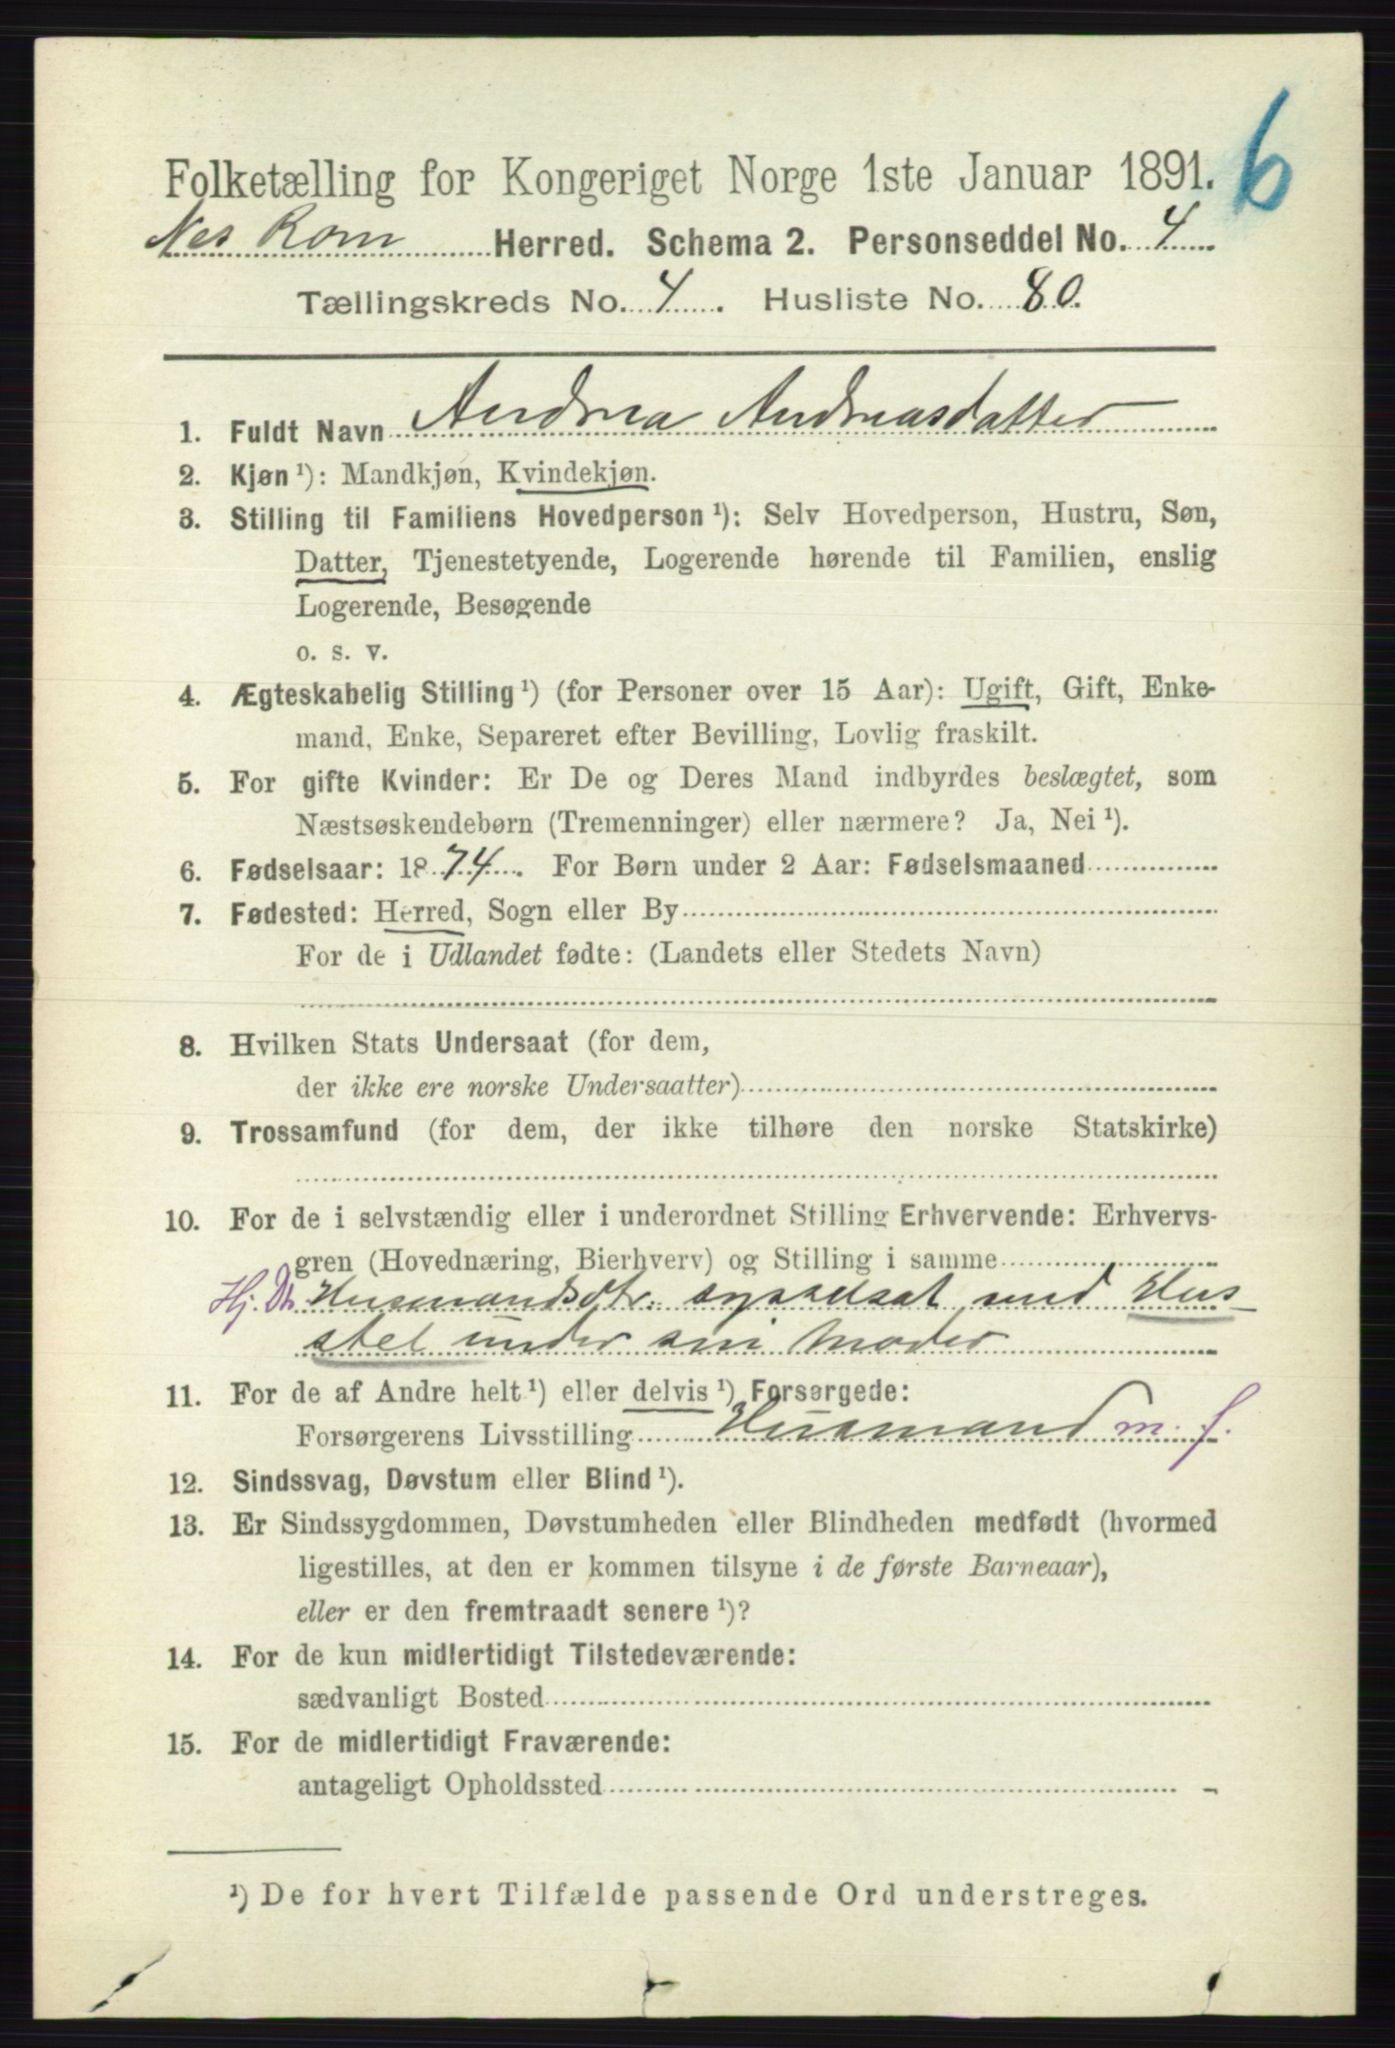 6
Folketælling for Kongeriget Norge 1ste Januar 1891.
Nes Rom Herred. Schema 2. Personseddel No. 4
Tællingskreds No. 4. Husliste No. 80.
1. Fuldt Navn Andrea Andreasdatter
2. Kjøn ¹): Mandkjøn, Kvindekjøn.
3. Stilling til Familiens Hovedperson ¹): Selv Hovedperson, Hustru, Søn,
Datter, Tjenestetyende, Logerende hørende til Familien, enslig
Logerende, Besøgende
o. s. v.
4. Ægteskabelig Stilling ¹) (for Personer over 15 Aar): Ugift, Gift, Enke-
mand, Enke, Separeret efter Bevilling, Lovlig fraskilt.
5. For gifte Kvinder: Er De og Deres Mand indbyrdes beslægtet, som
Næstsøskendebørn (Tremenninger) eller nærmere? Ja, Nei ¹).
6. Fødselsaar: 1874. For Børn under 2 Aar: Fødselsmaaned
7. Fødested: Herred, Sogn eller By
For de i Udlandet fødte: (Landets eller Stedets Navn)
8. Hvilken Stats Undersaat (for dem,
der ikke ere norske Undersaatter)
9. Trossamfund (for dem, der ikke tilhøre den norske Statskirke)
10. For de i selvstændig eller i underordnet Stilling Erhvervende: Erhvervs-
gren (Hovednæring, Bierhverv) og Stilling i samme
Hj. Dtr. Husmandsdtr. sysselsat med Hus-
stel under sin Moder
11. For de af Andre helt ¹) eller delvis ¹) Forsørgede:
Forsørgerens Livsstilling Husmand m. f.
12. Sindssvag, Døvstum eller Blind ¹).
13. Er Sindssygdommen, Døvstumheden eller Blindheden medfødt (hvormed
ligestilles, at den er kommen tilsyne i de første Barneaar),
eller er den fremtraadt senere ¹)?
14. For de kun midlertidigt Tilstedeværende:
sædvanligt Bosted
15. For de midlertidigt Fraværende:
antageligt Opholdssted
¹) De for hvert Tilfælde passende Ord understreges.